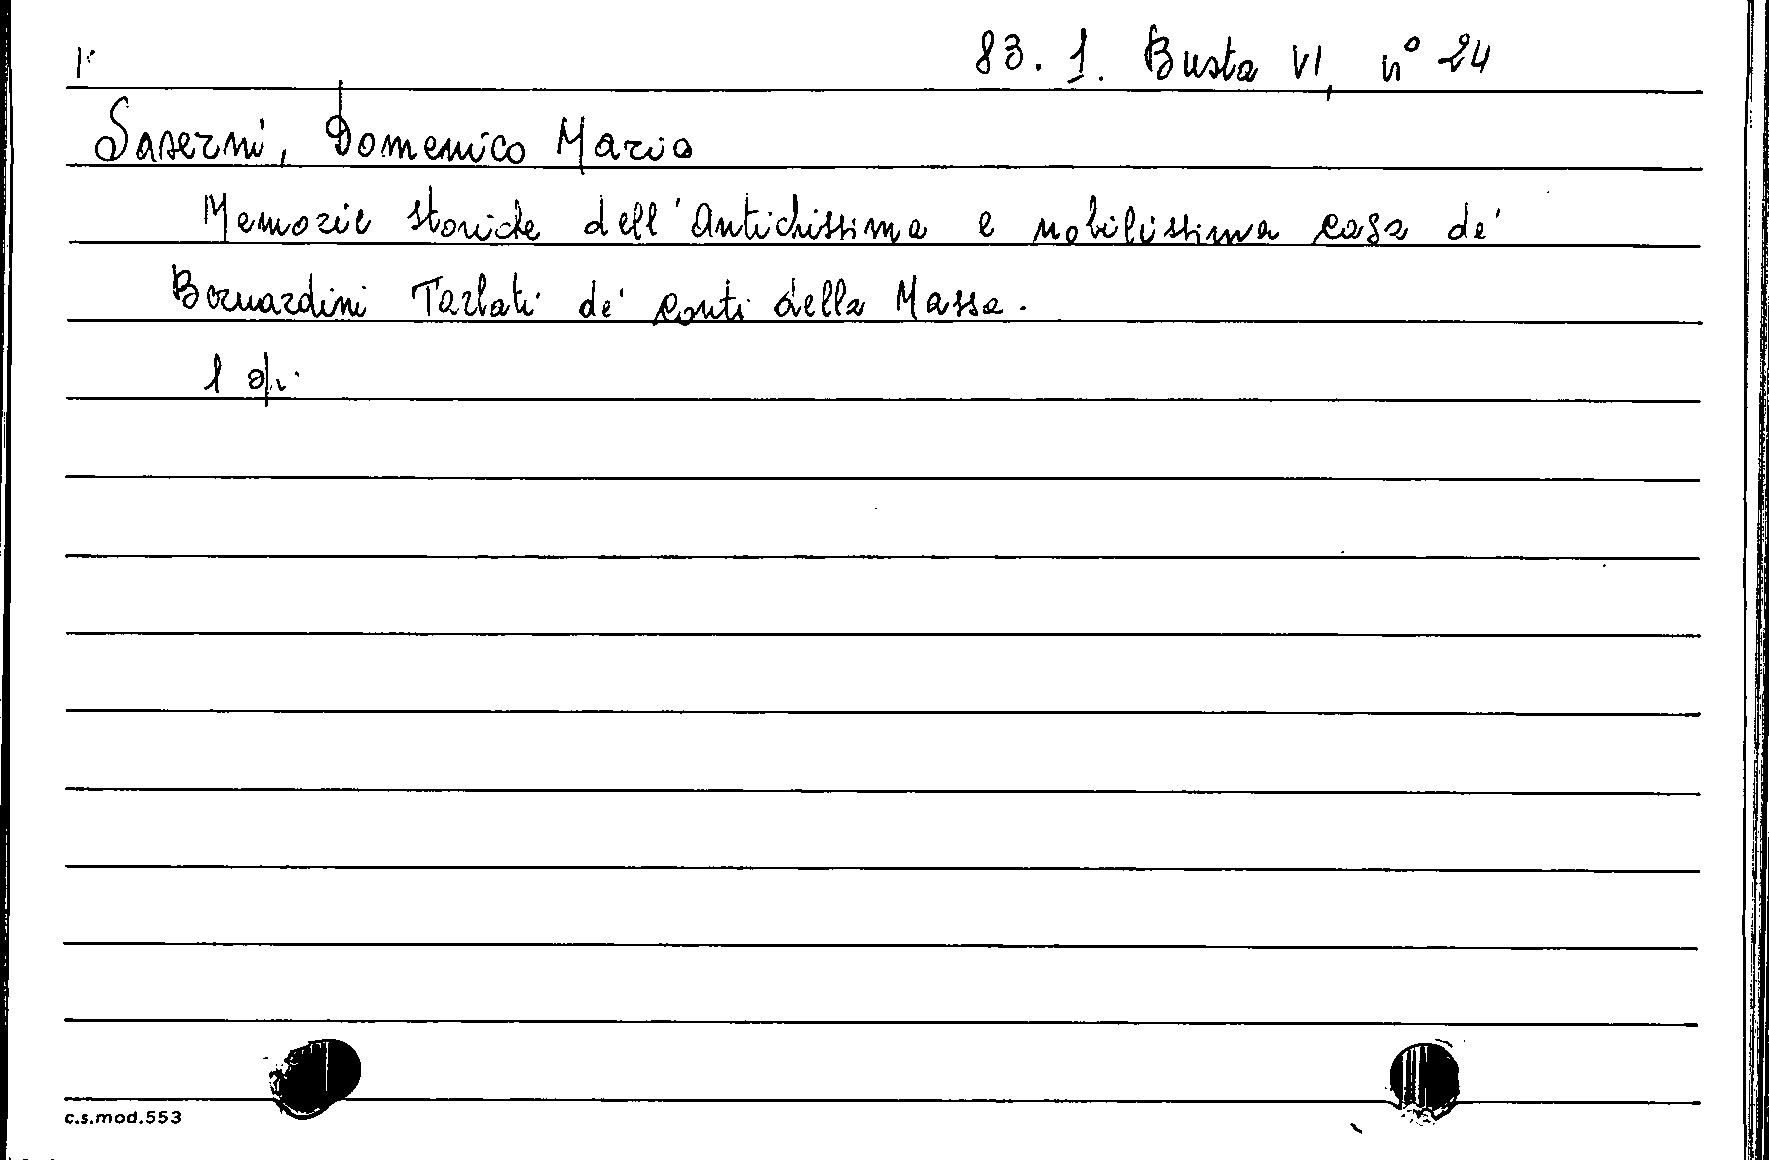 83. 1. Busta VI, n° 24
Saserni, Domenico Maria
Memorie storiche dell'Antichissima e nobilissima casa de'
Bernardini Tarlati de' conti della Massa.
1 op.
c.s.mod.553